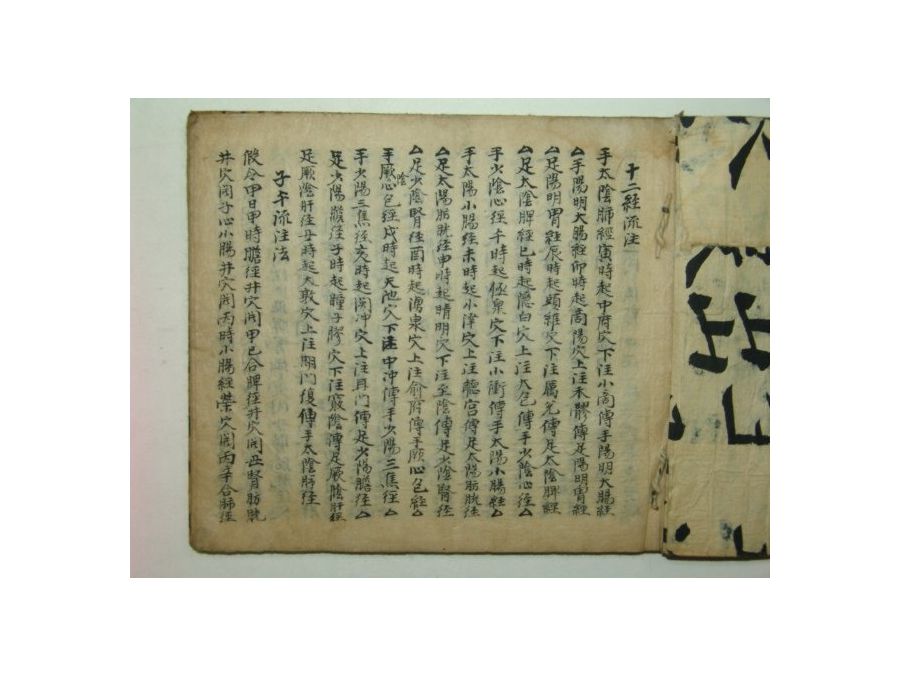 十二経流注
手太陰肺經寅時起中府穴下注小商傳手陽明大腸經
手陽明大腸經卯時起商陽穴上注禾膠傳足陽明胃經
足陽明胃經辰時起頭維穴下注厲兌傳足太陰脾經
足太陰脾經巳時起隠白穴上注大包傳手少陰心徑
手少陰心徑午時起極泉穴下注小衝傳手太陽小腸經
手太陽小腸経未時起小澤穴上注聽宮傳足太陽肪胱徑
足太陽肪胱徑申時起晴明穴下注至陰傳足少陰腎徑
足少陰腎徑酉時起湧泉穴上注俞府傳手厥心包經
手厥陰心包經戌時起天池穴下注中冲傳手少陽三焦徑
手少陽三焦徑亥時起関冲穴上注耳門傳足少陽膽徑
足少陽膽徑子時起瞳子膠穴下注竅陰傳足厥陰肝徑
足厥陰肝徑丑時起大敦穴上注期門復傳手太陰肺徑
子午流注法
假令甲日甲時膽徑井穴開甲己合脾徑井穴開丑腎肪胱
井穴開子心小腸井穴開丙時小腸經榮穴開丙辛合肺徑